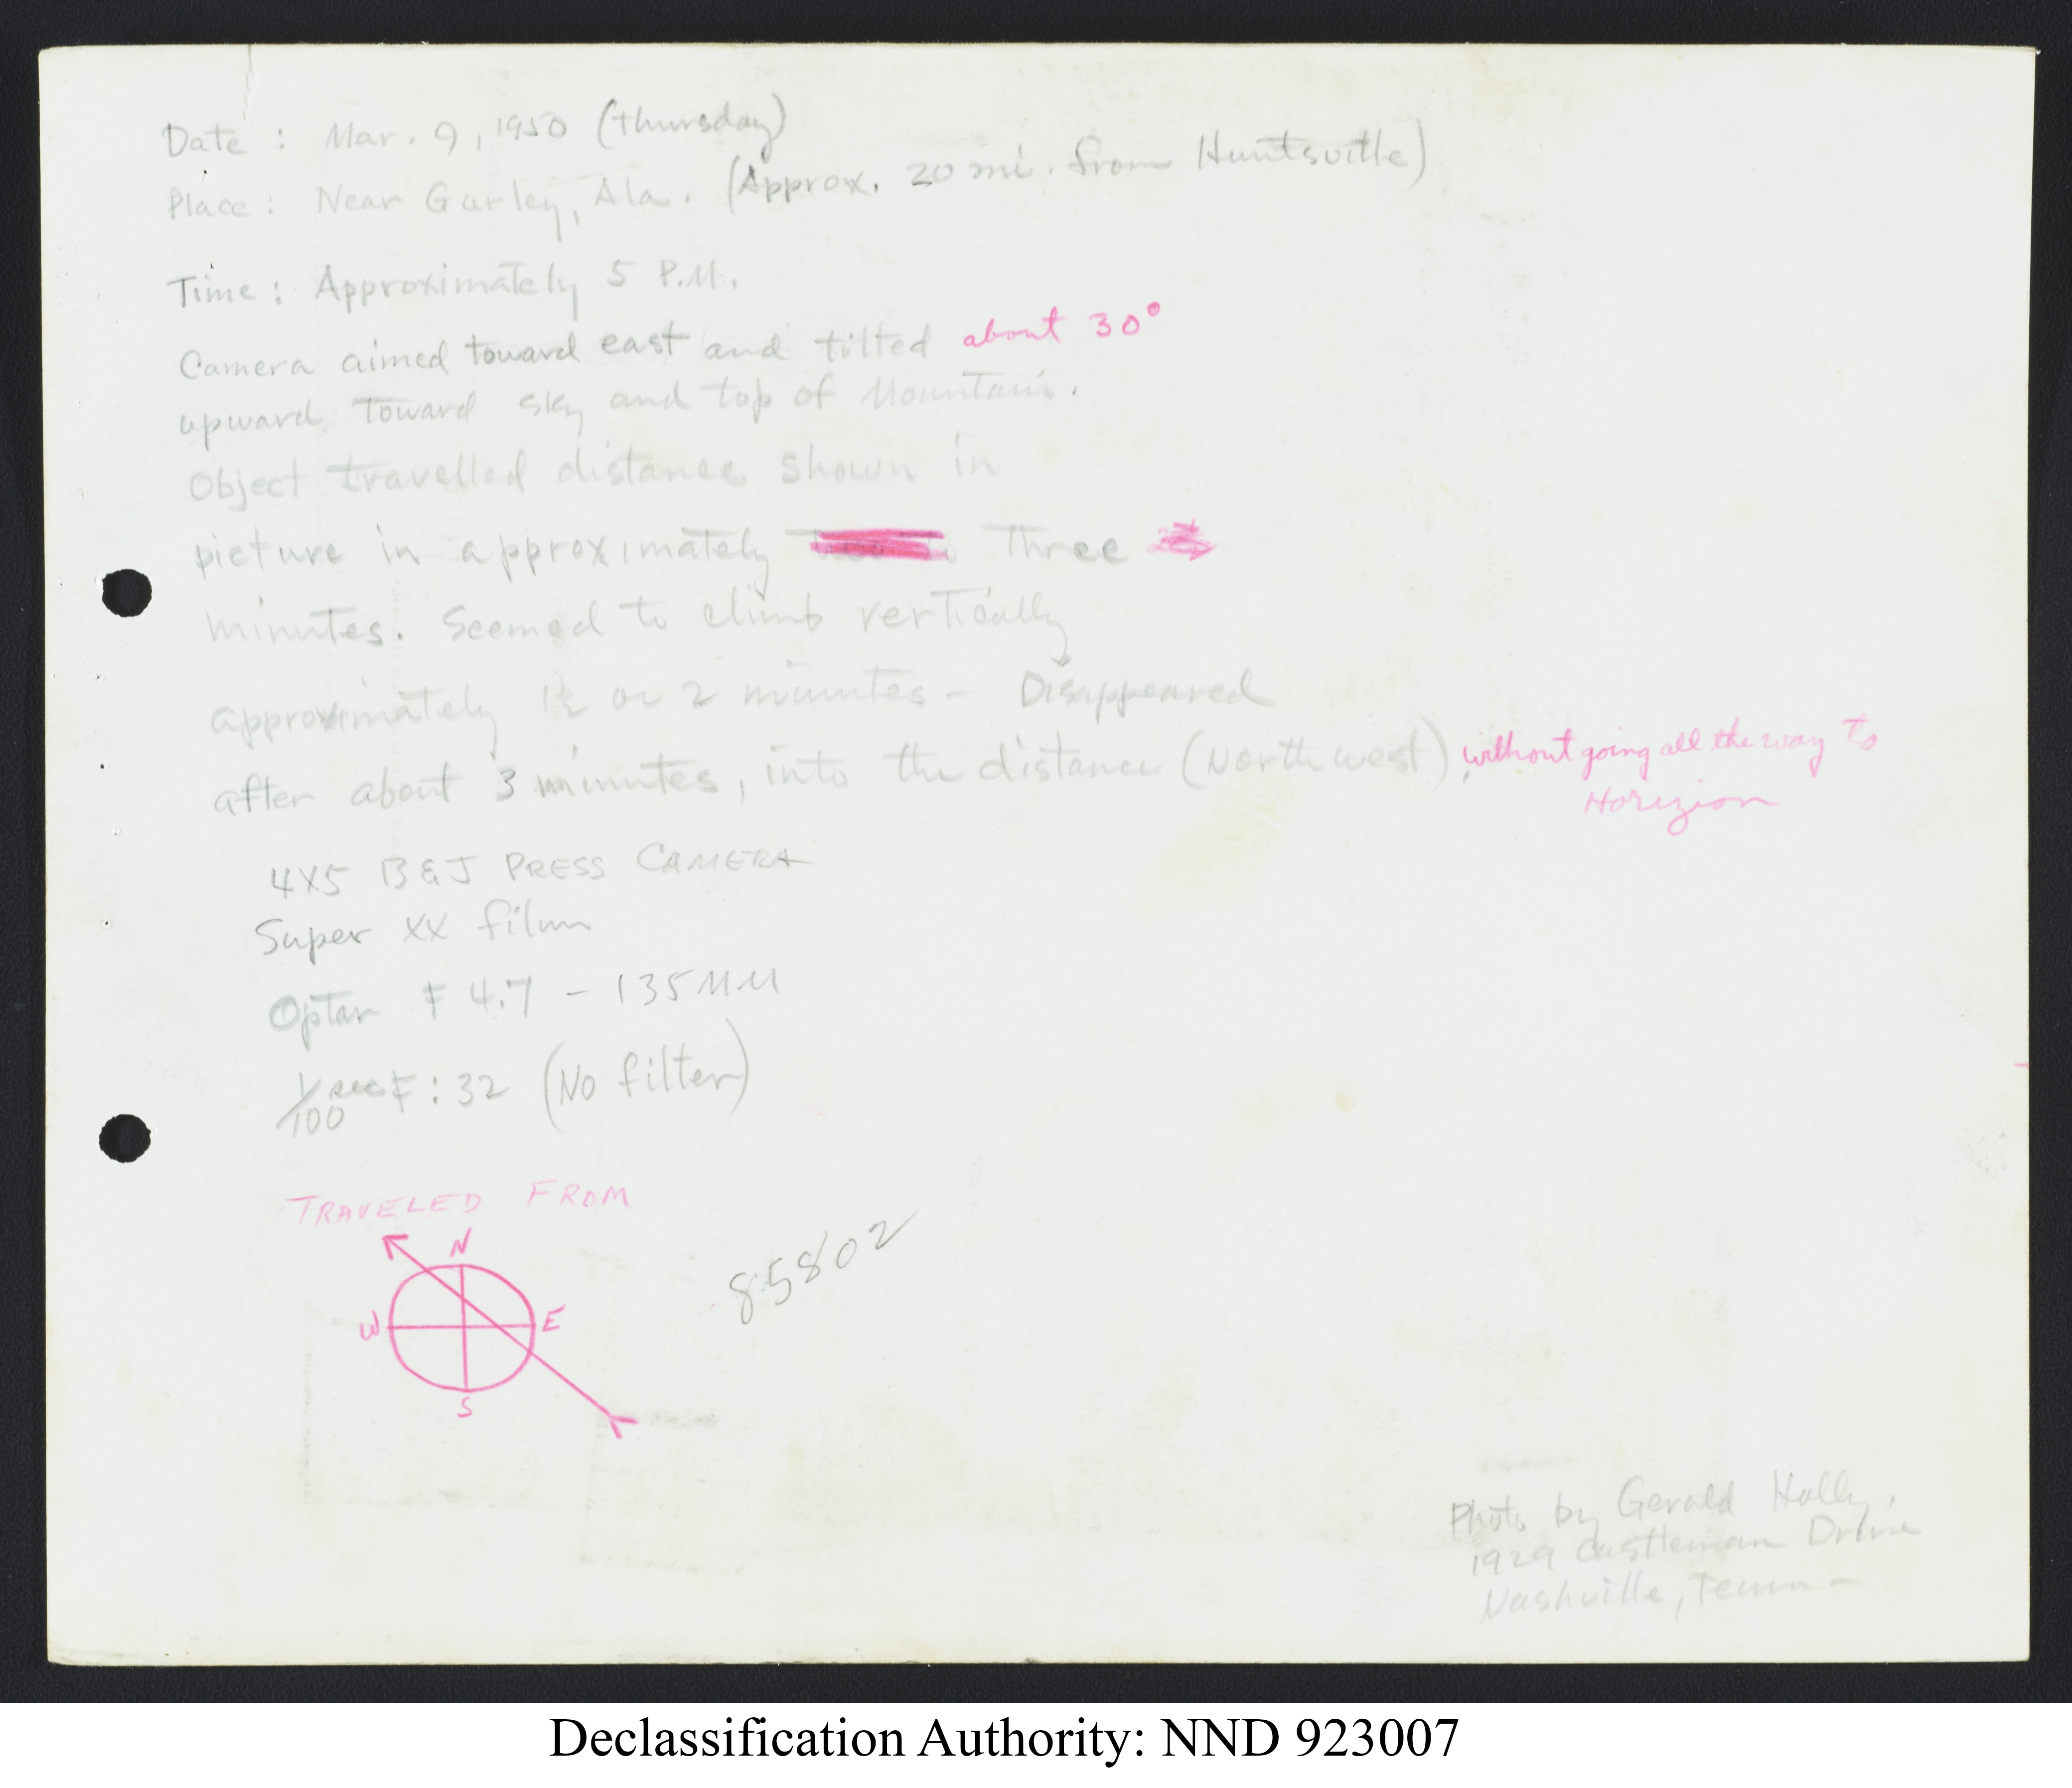 Date : Mar. 9, 1950 (thursday)
Place : Near Gurley, Ala. (Approx. 20 mi. from Huntsville)
Time : Approximately 5 P.M.
Camera aimed toward east and tilted about 30°
upward toward sky and top of Mountain.
Object travelled distance shown in
picture in approximately Three
minutes. Seemed to climb vertically
approximately 1½ or 2 minutes - Disappeared
after about 3 minutes, into the distance (Northwest), without going all the way to
Horizion
4X5 B&J PRESS CAMERA
Super XX film
Optar F 4.7 - 135MM
1/100 sec F:32 (No filter)
TRAVELED FROM
N
W E
S
85802
Photo by Gerald Holly,
1929 Castleman Drive
Nashville, Tenn -
Declassification Authority: NND 923007